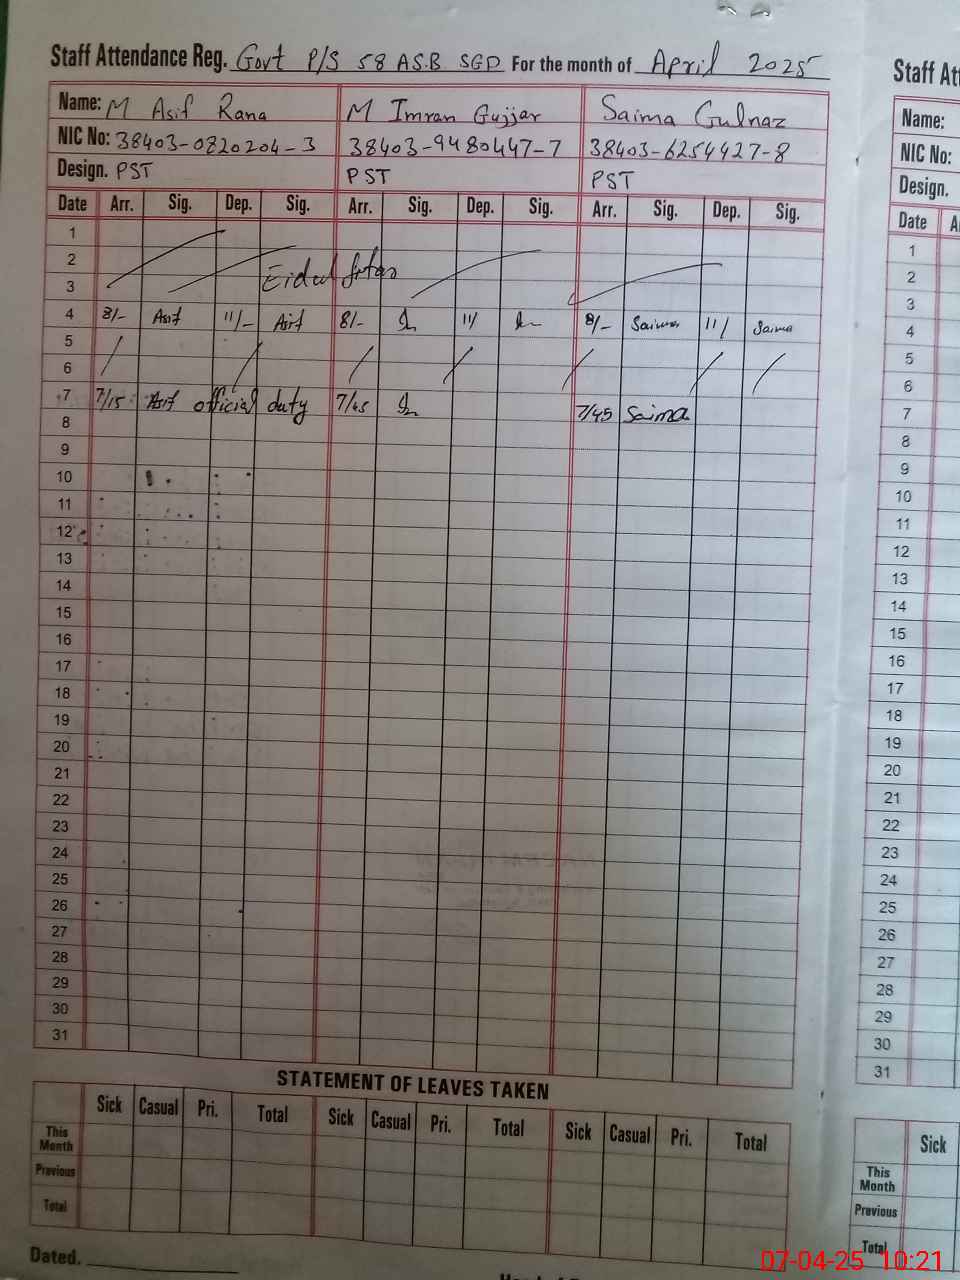 Staff Attendance Reg. Govt P/S 58 A.S.B SGD For the month of April 2025
Name: M Asif Rana M Imran Gujjar Saima Gulnaz
NIC No: 38403-0820204-3 38403-9480447-7 38403-6254427-8
Design. PST PST PST
Date Arr. Sig. Dep. Sig. Arr. Sig. Dep. Sig. Arr. Sig. Dep. Sig.
1
2
3 Eidul fitar
4 8/- Asif 11/- Asif 8/- 11/ 8/- Saima 11/ Saima
5
6
7 7/15 Asif official duty 7/45 7/45 Saima
8
9
10
11
12
13
14
15
16
17
18
19
20
21
22
23
24
25
26
27
28
29
30
31
STATEMENT OF LEAVES TAKEN
Sick Casual Pri. Total Sick Casual Pri. Total Sick Casual Pri. Total
This Month
Previous
Total
Dated.
Staff Att
Name:
NIC No:
Design.
Date
1
2
3
4
5
6
7
8
9
10
11
12
13
14
15
16
17
18
19
20
21
22
23
24
25
26
27
28
29
30
31
Sick
This Month
Previous
Total
07-04-25 10:21